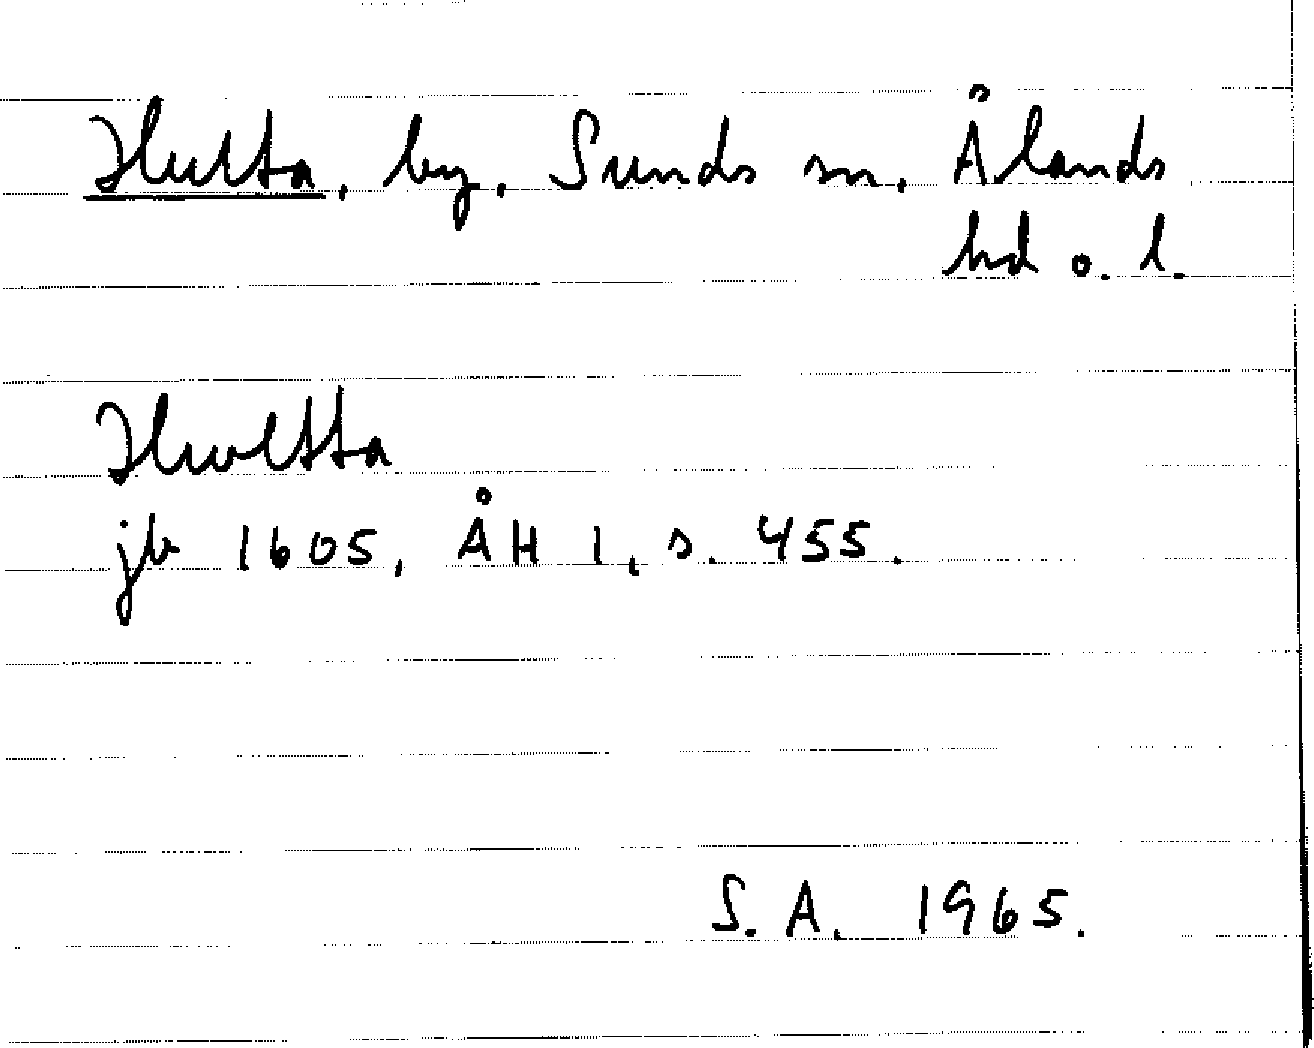 Hulta, by, Sunds sn, Ålands
hd o. l.
Hwltta
jb 1605, ÅH 1, s. 455.
S.A. 1965.